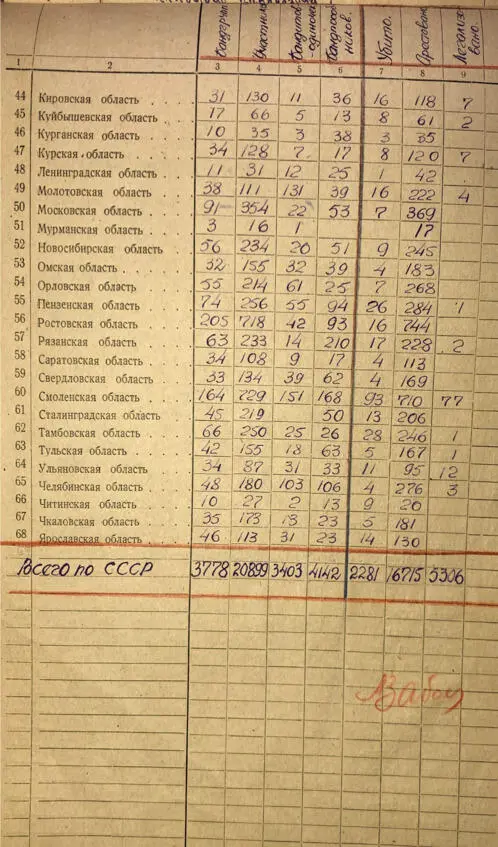 Бандгрупп
Участников
Бандитов-одиночек
Бандпособников.
Убито.
Арестовано
Легализовано.
1 2 3 4 5 6 7 8 9
44 Кировская область . . . . 31 130 11 36 16 118 7
45 Куйбышевская область . . 17 66 5 13 8 61 2
46 Курганская область . . . 10 35 3 38 3 35
47 Курская область . . . . 34 128 7 17 8 120 7
48 Ленинградская область . . 11 31 12 25 1 42
49 Молотовская область . . . 38 111 131 39 16 222 4
50 Московская область . . . 91 354 22 53 7 369
51 Мурманская область . . . 3 16 1 17
52 Новосибирская область 56 234 20 51 9 245
53 Омская область . . . . . 32 155 32 39 4 183
54 Орловская область . . . 55 214 61 25 7 268
55 Пензенская область . . . 74 256 55 94 26 284 1
56 Ростовская область . . . 205 718 42 93 16 744
57 Рязанская область . . . . 63 233 14 210 17 228 2
58 Саратовская область . . . 34 108 9 17 4 113
59 Свердловская область . . 33 134 39 62 4 169
60 Смоленская область . . . 164 729 151 168 93 710 77
61 Сталинградская область 45 219 50 13 206
62 Тамбовская область . . . 66 250 25 26 28 246 1
63 Тульская область . . . . 42 155 18 63 5 167 1
64 Ульяновская область . . . 34 87 31 33 11 95 12
65 Челябинская область . . . 48 180 103 106 4 276 3
66 Читинская область . . . . 10 27 2 13 9 20
67 Чкаловская область . . . 35 173 13 23 5 181
68 Ярославская область . . . 46 113 31 23 14 130
Всего по СССР 3778 20899 3403 4142 2281 16715 5306